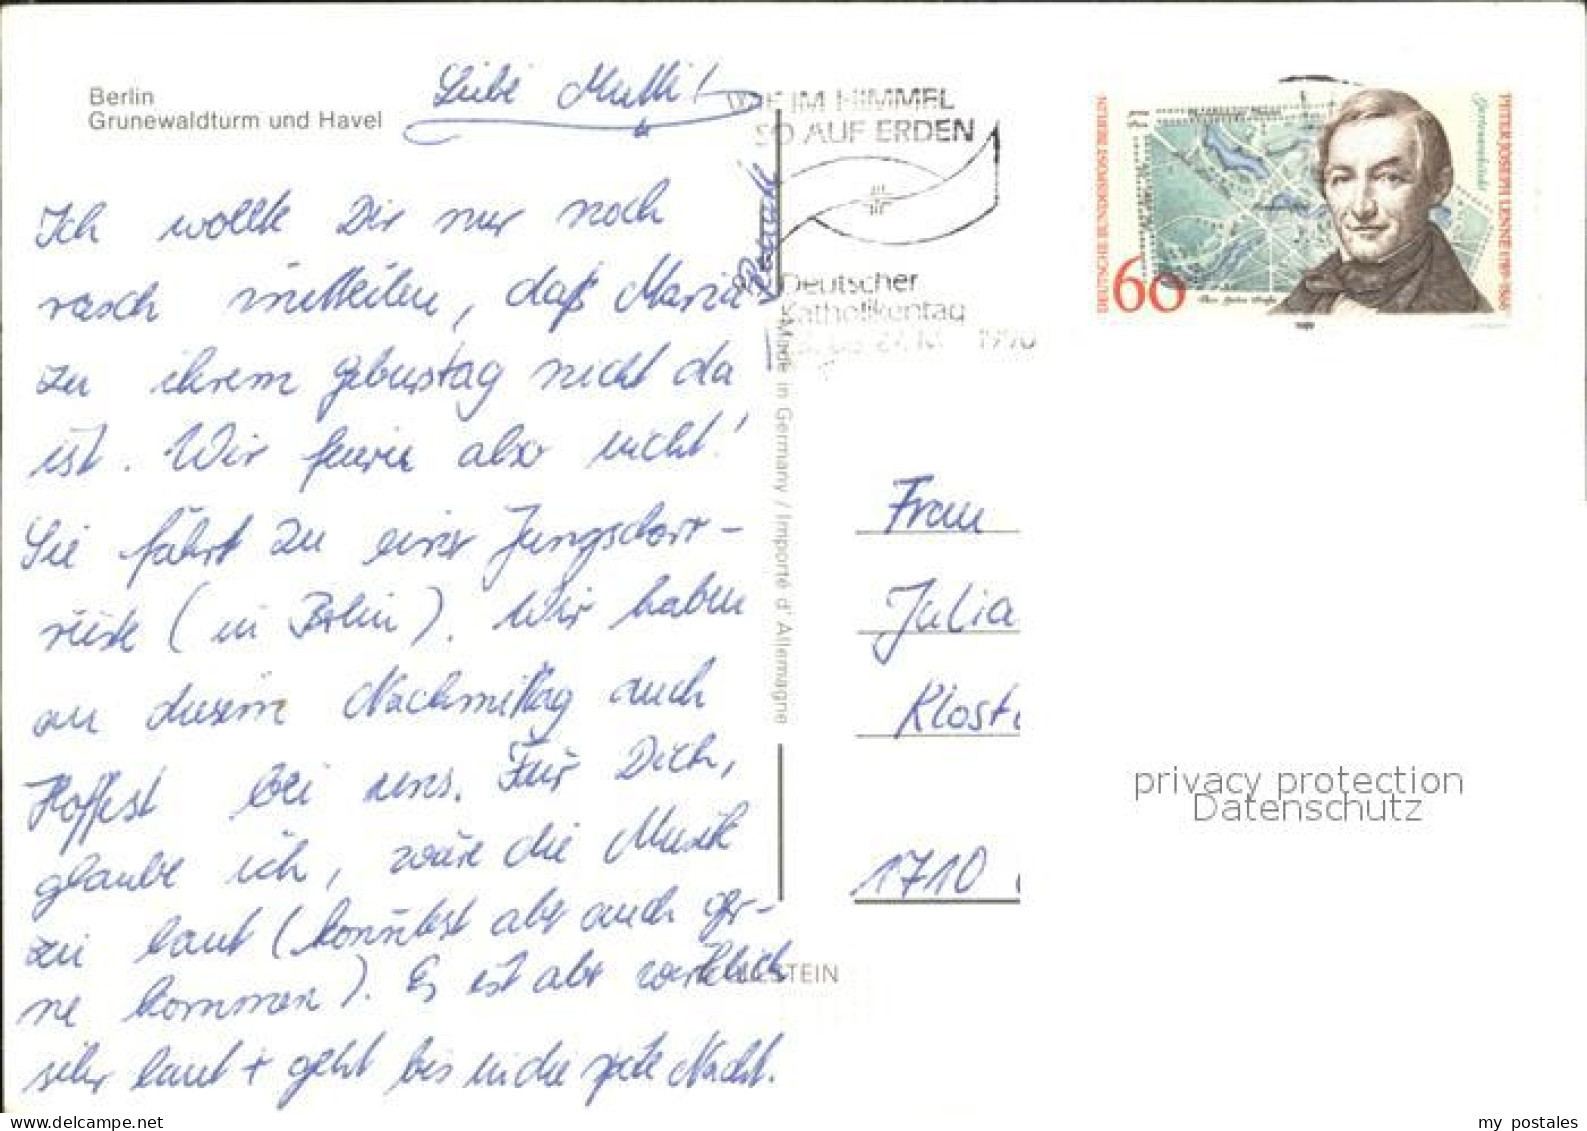 Berlin
Grunewaldturm und Havel
Liebe Mutti!
Ich wollte Dir nur noch
rasch mitteilen, daß Maria
zu ihrem Geburtstag nicht da
ist. Wir feiern also nicht!
Sie fährt zu einer Jungscharr-
(in Berlin). Wir haben
an diesem Nachmittag auch
Hoffest bei uns. Für Dich,
glaube ich, wäre die Musik
zu laut (könntest aber auch ger-
ne kommen). Es ist aber wirklich
sehr laut + geht bis in die späte Nacht.
WIE IM HIMMEL
SO AUF ERDEN
Deutscher
Katholikentag
1990
Made in Germany / Importé d'Allemagne
ULLSTEIN
DEUTSCHE BUNDESPOST BERLIN
60
PETER JOSEPH LENNÉ 1789-1866
Gartenbaukunst
1989
Frau
Julia
Klost
1710
privacy protection
Datenschutz
my postales